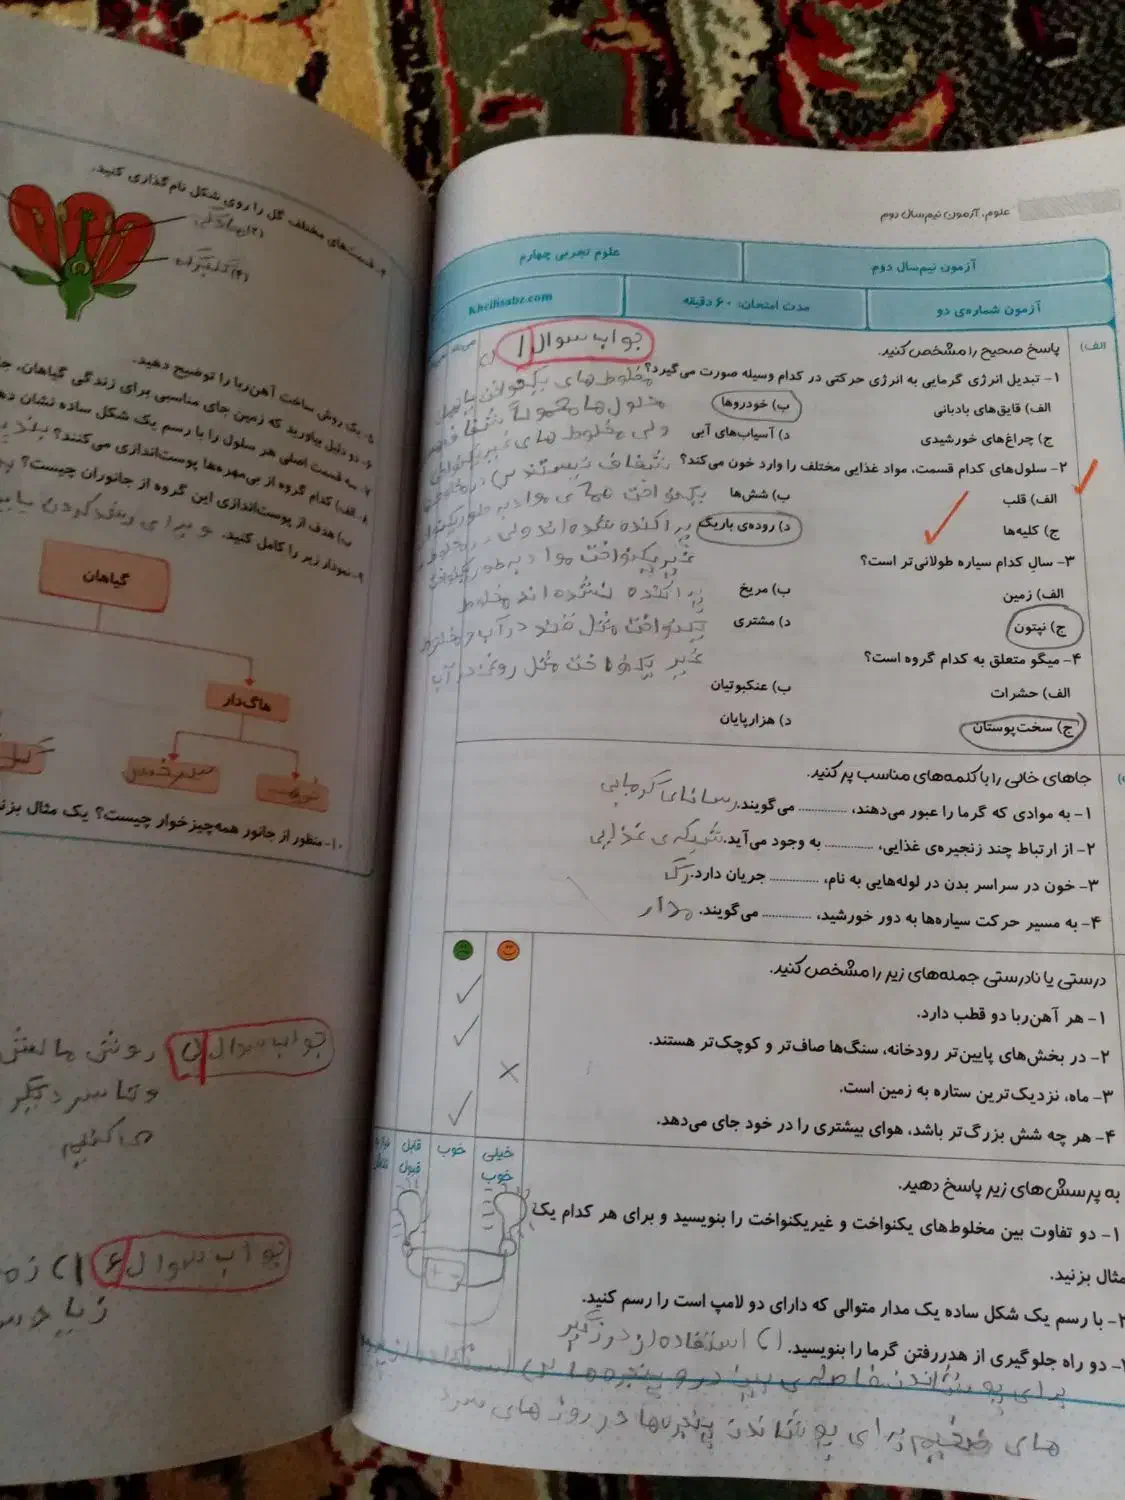 علوم، آزمون نیم‌سال دوم
آزمون نیم‌سال دوم
علوم تجربی چهارم
آزمون شماره‌ی دو
مدت امتحان: ۶۰ دقیقه
Kheilisabz.com
الف)
پاسخ صحیح را مشخص کنید.
۱- تبدیل انرژی گرمایی به انرژی حرکتی در کدام وسیله صورت می‌گیرد؟
الف) قایق‌های بادبانی
ب) خودروها
ج) چراغ‌های خورشیدی
د) آسیاب‌های آبی
۲- سلول‌های کدام قسمت، مواد غذایی مختلف را وارد خون می‌کند؟
الف) قلب
ب) شش‌ها
ج) کلیه‌ها
د) روده‌ی باریک
۳- سال کدام سیاره طولانی‌تر است؟
الف) زمین
ب) مریخ
ج) نپتون
د) مشتری
۴- میگو متعلق به کدام گروه است؟
الف) حشرات
ب) عنکبوتیان
ج) سخت‌پوستان
د) هزارپایان
جواب سوال ۱
مخلوط های یکنواخت
محلول ها معمولاً شفاف
ولی مخلوط های غیر یکنواخت
شفاف نیستند در مخلوط
یکنواخت همه ی مواد به طور یکنواخت
پراکنده شده اند ولی در مخلوط
غیر یکنواخت مواد به طور یکنواخت
پراکنده نشده اند مخلوط
یکنواخت مثل قند در آب و مخلوط
غیر یکنواخت مثل روغن در آب
جاهای خالی را با کلمه‌های مناسب پر کنید.
۱- به موادی که گرما را عبور می‌دهند، ............ می‌گویند. رسانای گرمایی
۲- از ارتباط چند زنجیره‌ی غذایی، ............ به وجود می‌آید. شبکه ی غذایی
۳- خون در سراسر بدن در لوله‌هایی به نام، ............ جریان دارد. رگ
۴- به مسیر حرکت سیاره‌ها به دور خورشید، ............ می‌گویند. مدار
درستی یا نادرستی جمله‌های زیر را مشخص کنید.
۱- هر آهن‌ربا دو قطب دارد.
۲- در بخش‌های پایین‌تر رودخانه، سنگ‌ها صاف‌تر و کوچک‌تر هستند.
۳- ماه، نزدیک‌ترین ستاره به زمین است.
۴- هر چه شش بزرگ‌تر باشد، هوای بیشتری را در خود جای می‌دهد.
خیلی خوب
خوب
قابل قبول
به پرسش‌های زیر پاسخ دهید.
۱- دو تفاوت بین مخلوط‌های یکنواخت و غیریکنواخت را بنویسید و برای هر کدام یک
مثال بزنید.
۲- با رسم یک شکل ساده یک مدار متوالی که دارای دو لامپ است را رسم کنید.
دو راه جلوگیری از هدررفتن گرما را بنویسید. ۱) استفاده از درزگیر
برای پوشاندن فاصله ی بین در و پنجره ها ۲) استفاده از
های ضخیم برای پوشاندن پنجره‌ها در روز های سرد
۴- قسمت‌های مختلف گل را روی شکل نام‌گذاری کنید.
(۲)
(۴) گلبرگ
۵- یک روش ساخت آهن‌ربا را توضیح دهید.
۶- دو دلیل بیاورید که زمین جای مناسبی برای زندگی گیاهان،
۷- سه قسمت اصلی هر سلول را با رسم یک شکل ساده نشان
۸- الف) کدام گروه از بی‌مهره‌ها پوست‌اندازی می‌کنند؟
ب) هدف از پوست‌اندازی این گروه از جانوران چیست؟
و برای رشد کردن
۹- نمودار زیر را کامل کنید.
گیاهان
هاگ‌دار
سرخس
۱۰- منظور از جانور همه‌چیزخوار چیست؟ یک مثال
جواب سوال ۵ روش مالش
و تا سر دیگر
می کنیم
جواب سوال ۶ ۱)